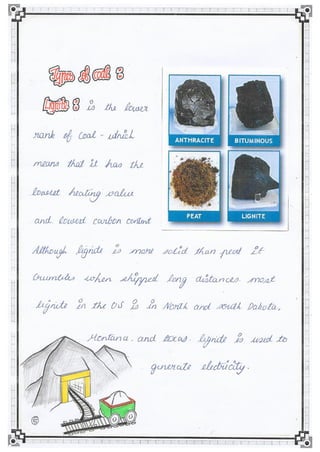 Types of coal :
Lignite : is the lower
rank of coal - which
means that it has the
lowest heating value
and lowest carbon content
Although lignite is more solid than peat it
crumbles when shipped long distances. most
lignite in the US is in North and south Dakota,
Montana, and texas. lignite is used to
generate electricity.
ANTHRACITE
BITUMINOUS
PEAT
LIGNITE